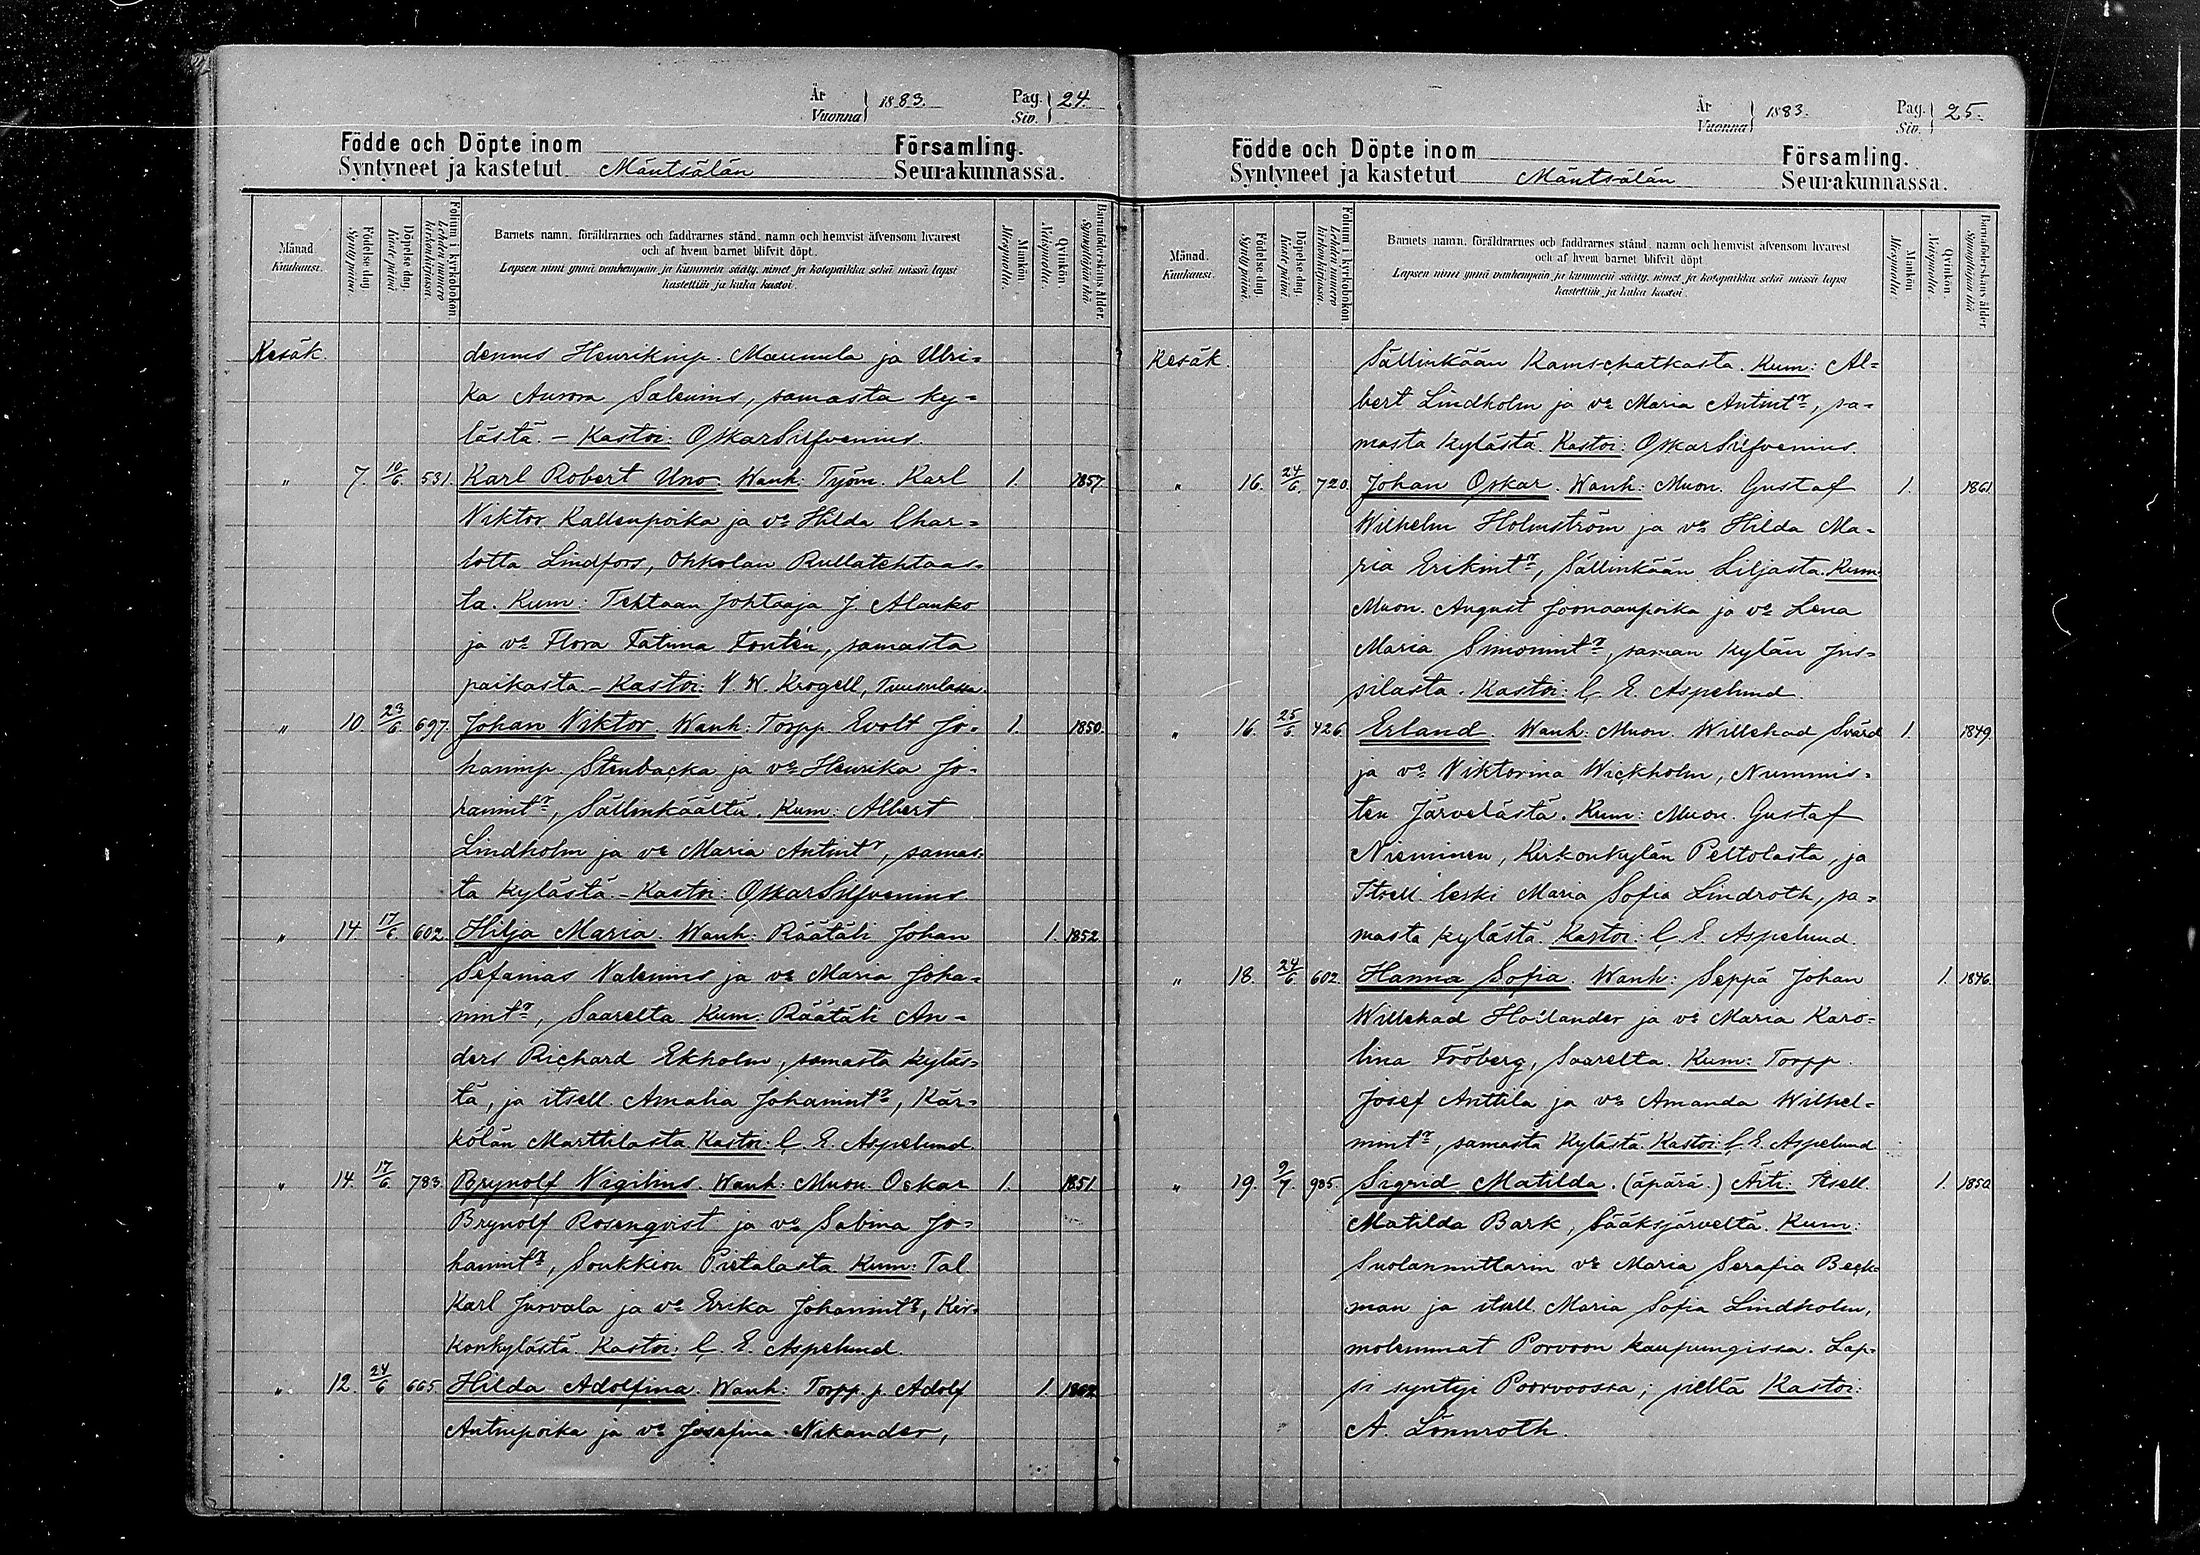 År
Vuonna 1883.
Pag.
Siv. 24.
Födde och Döpte inom Församling.
Syntyneet ja kastetut Mäntsälän Seurakunnassa.
Månad.
Kuukausi.
Födelse dag.
Syntypäivä.
Döpelse dag.
Kastepäivä.
Folium i kyrkoboken.
Lehden numero kirkonkirjassa.
Barnets namn, föräldrarnes och faddrarnes stånd, namn och hemvist äfvensom hvarest
och af hvem barnet blifvit döpt.
Lapsen nimi ynnä vanhempain ja kummein sääty, nimet ja kotopaikka sekä missä lapsi
kastettiin ja kuka kastoi.
Mankön.
Miespuolia.
Qvinkön.
Naispuolia.
Barnaföderskans ålder.
Synnyttäjän ikä.
Kesäk. dennus Henrikinp. Maunula ja Ulri-
ka Aurora Salenius, samasta ky-
lästä. - Kastoi: Oskar Silfvenius.
" 7. 10/6 531. Karl Robert Uno. Wanh: Työm. Karl 1. 1857
Viktor Kallenpoika ja vo Hilda Char-
lotta Lindfors, Ohkolan Rullatehtaas-
ta. Kum: Tehtaan Johtaaja J. Alanko
ja vo Flora Fatima Fontén, samasta
paikasta. - Kastoi: V. W. Krogell, Tuusulassa.
" 10. 23/6 697. Johan Viktor. Wanh: Torpp. Evolt Jo- 1. 1850.
haninp. Stenbacka ja vo Henrika Jo-
hanintr, Sällinkäältä. Kum: Albert
Lindholm ja vo Maria Antintr, samas-
ta kylästä. - Kastoi: Oskar Silfvenius
" 14. 17/6 602. Hilja Maria. Wanh: Räätäli Johan 1. 1852
Sefanias Valenius ja vo Maria Joha-
nintr, Saarelta. Kum: Räätäli An-
ders Richard Ekholm, samasta kyläs-
tä, ja itsell. Amalia Johanintr, Kär-
kölän Marttilasta. Kastoi: C. E. Aspelund.
" 14. 17/6 783. Brynolf Vigilius. Wanh: Muon. Oskar 1. 1851
Brynolf Rosenqvist ja vo Sabina Jo-
hanintr, Soukkion Pietalasta. Kum: Tal.
Karl Jurvala ja vo Erika Johanintr, Kir-
konkylästä. Kastoi: C. E. Aspelund.
" 12. 24/6 665. Hilda Adolfina. Wanh: Torpp. p. Adolf 1.
Antinpoika ja vo Josefina Nikander,
År
Vuonna 1883.
Pag.
Siv. 25.
Födde och Döpte inom Församling.
Syntyneet ja kastetut Mäntsälän Seurakunnassa.
Månad.
Kuukausi.
Födelse-dag.
Syntypäivä.
Döpelse-dag.
Kastepäivä.
Folium i kyrkoboken.
Lehden numero kirkonkirjassa.
Barnets namn, föräldrarnes och faddrarnes stånd, namn och hemvist äfvensom hvarest
och af hvem barnet blifvit döpt.
Lapsen nimi ynnä vanhempain ja kummein sääty, nimet ja kotopaikka sekä missä lapsi
kastettiin ja kuka kastoi.
Mankön.
Miespuolia.
Qvinkön.
Naispuolia.
Barnaföderskans ålder.
Synnyttäjän ikä.
Kesäk. Sällinkään Kamschatkasta. Kum: Al-
bert Lindholm ja vo Maria Antintr, sa-
masta kylästä. Kastoi: Oskar Silfvenius.
" 16. 24/6. 720. Johan Oskar. Wanh: Muon. Gustaf 1. 1861
Wilhelm Holmström ja vo Hilda Ma-
ria Erikintr, Sällinkään Liljasta. Kum:
Muon. August Joonaanpoika ja vo Lena
Maria Simonintr, saman kylän Jus-
silasta. Kastoi: C. E. Aspelund.
" 16. 25/6 426. Erland. Wanh: Muon. Willehad Svärd 1. 1849.
ja vo Viktorina Wickholm, Nummis-
ten Järvelästä. Kum: Muon. Gustaf
Nieminen, Kirkonkylän Peltolasta, ja
Itsell. leski Maria Sofia Lindroth, sa-
masta kylästä. Kastoi: C. E. Aspelund.
" 18. 24/6 602. Hanna Sofia. Wanh: Seppä Johan 1. 1846.
Willehad Hollander ja vo Maria Karo-
lina Fröberg, Saarelta. Kum: Torpp.
Josef Anttila ja vo Amanda Wilhel-
mintr, samasta kylästä. Kastoi: C. E. Aspelund
" 19. 9/7. 985. Sigrid Matilda. (äpärä.) Äiti: Itsell. 1. 1850
Matilda Bark, Sääksjärveltä. Kum:
Suolanmittarin vo Maria Serafia Beck-
man ja itsell. Maria Sofia Lindholm,
molemmat Porvoon kaupungissa. Lap-
si syntyi Poorvoossa; siellä Kastoi:
A. Lönnroth.